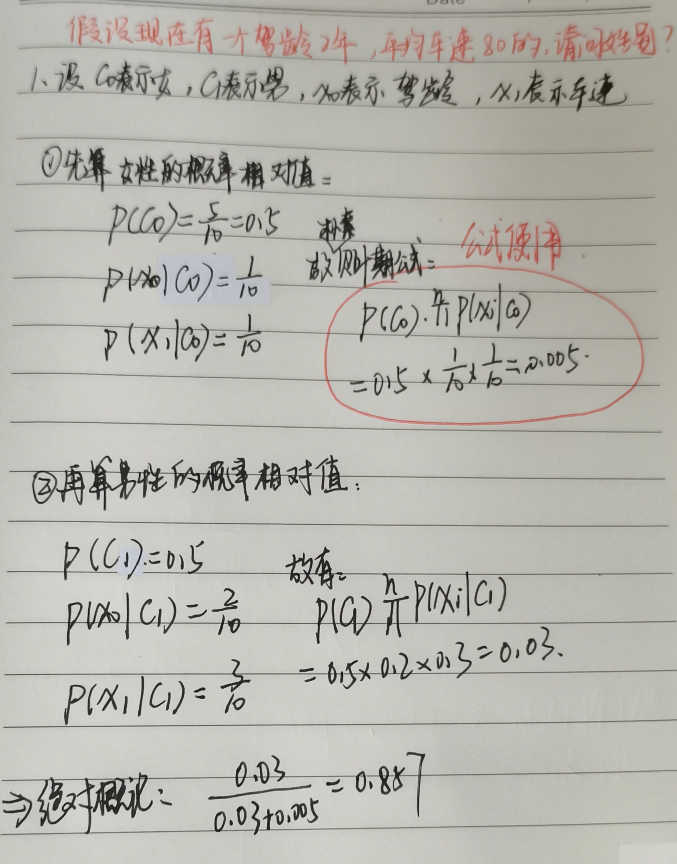 Date
假设现在有一个驾龄2年，平均车速80的，请问性别？
1、设C₀表示女，C₁表示男，x₀表示驾龄，x₁表示车速
①先算女性的概率相对值：
P(C₀)=5/10=0.5
P(x₀|C₀)=1/10
P(x₁|C₀)=1/10
朴素
故贝叶斯公式：
公式使用
P(C₀)·∏ⁿP(xᵢ|C₀)
=0.5×1/10×1/10=0.005.
②再算男性的概率相对值：
P(C₁)=0.5
P(x₀|C₁)=2/10
P(x₁|C₁)=3/10
故有：
P(C₁)∏ⁿP(xᵢ|C₁)
=0.5×0.2×0.3=0.03.
⇒绝对概论：0.03/(0.03+0.005)=0.857